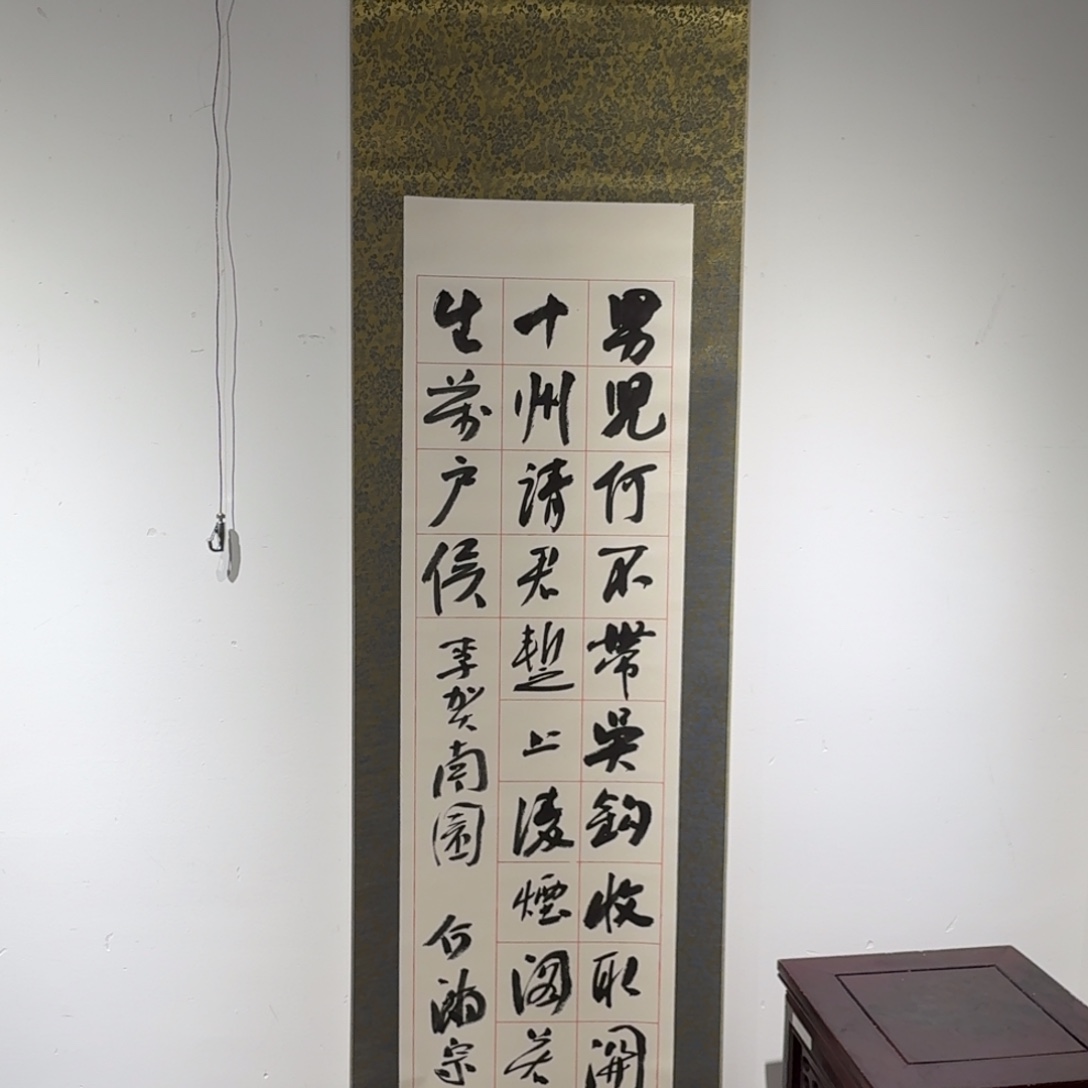 男兒何不帶吳鈎收取關
十州請君暫上凌煙閣若
生萬户侯 李賀南園 何 宗